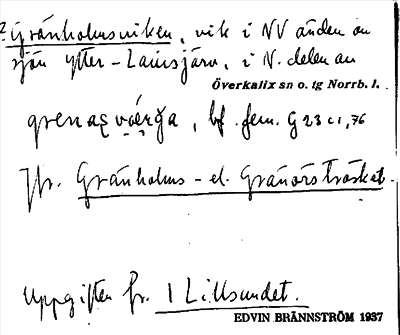 Granholmsviken, vik i NV änden av
sjön Ytter-Lainsjärv, i N. delen av
Överkalix sn o. tg Norrb. l.
grenas, bf. fem. G 23 c1, 76
Jfr. Granholms- el. Granörsträsket.
Uppgiften fr. 1 Lillsundet.
EDVIN BRÄNNSTRÖM 1937